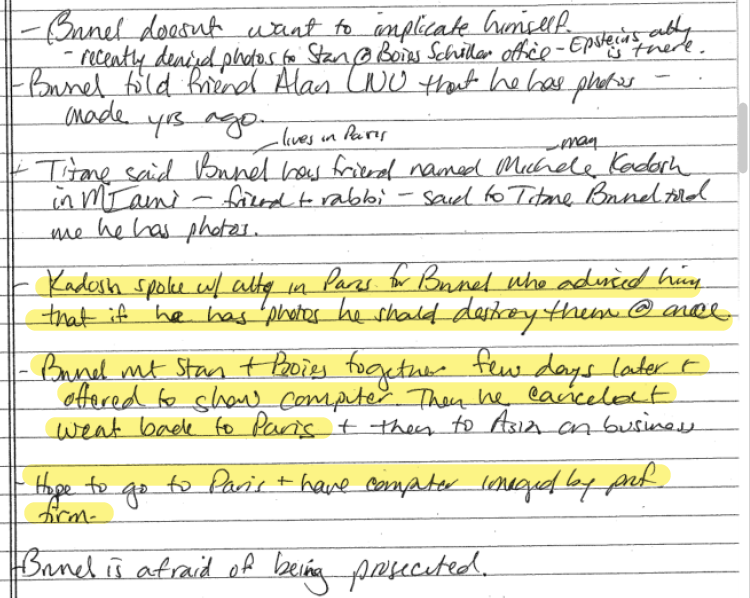 - Brunel doesn't want to implicate himself.
- recently denied photos to Stan @ Boies Schiller office - Epstein's atty is there.
- Brunel told friend Alan (NU) that he has photos -
made yrs ago.
lives in Paris
man
+ Titone said Brunel has friend named Michele Kadosh
in Miami - friend + rabbi - said to Titone Brunel told
me he has photos.
- Kadosh spoke w/ atty in Paris for Brunel who advised him
that if he has photos he should destroy them @ once.
- Brunel mt Stan + Boies together few days later +
offered to show computer. Then he canceled +
went back to Paris + then to Asia on business
- Hope to go to Paris + have computer imaged by prof.
firm.
- Brunel is afraid of being prosecuted.